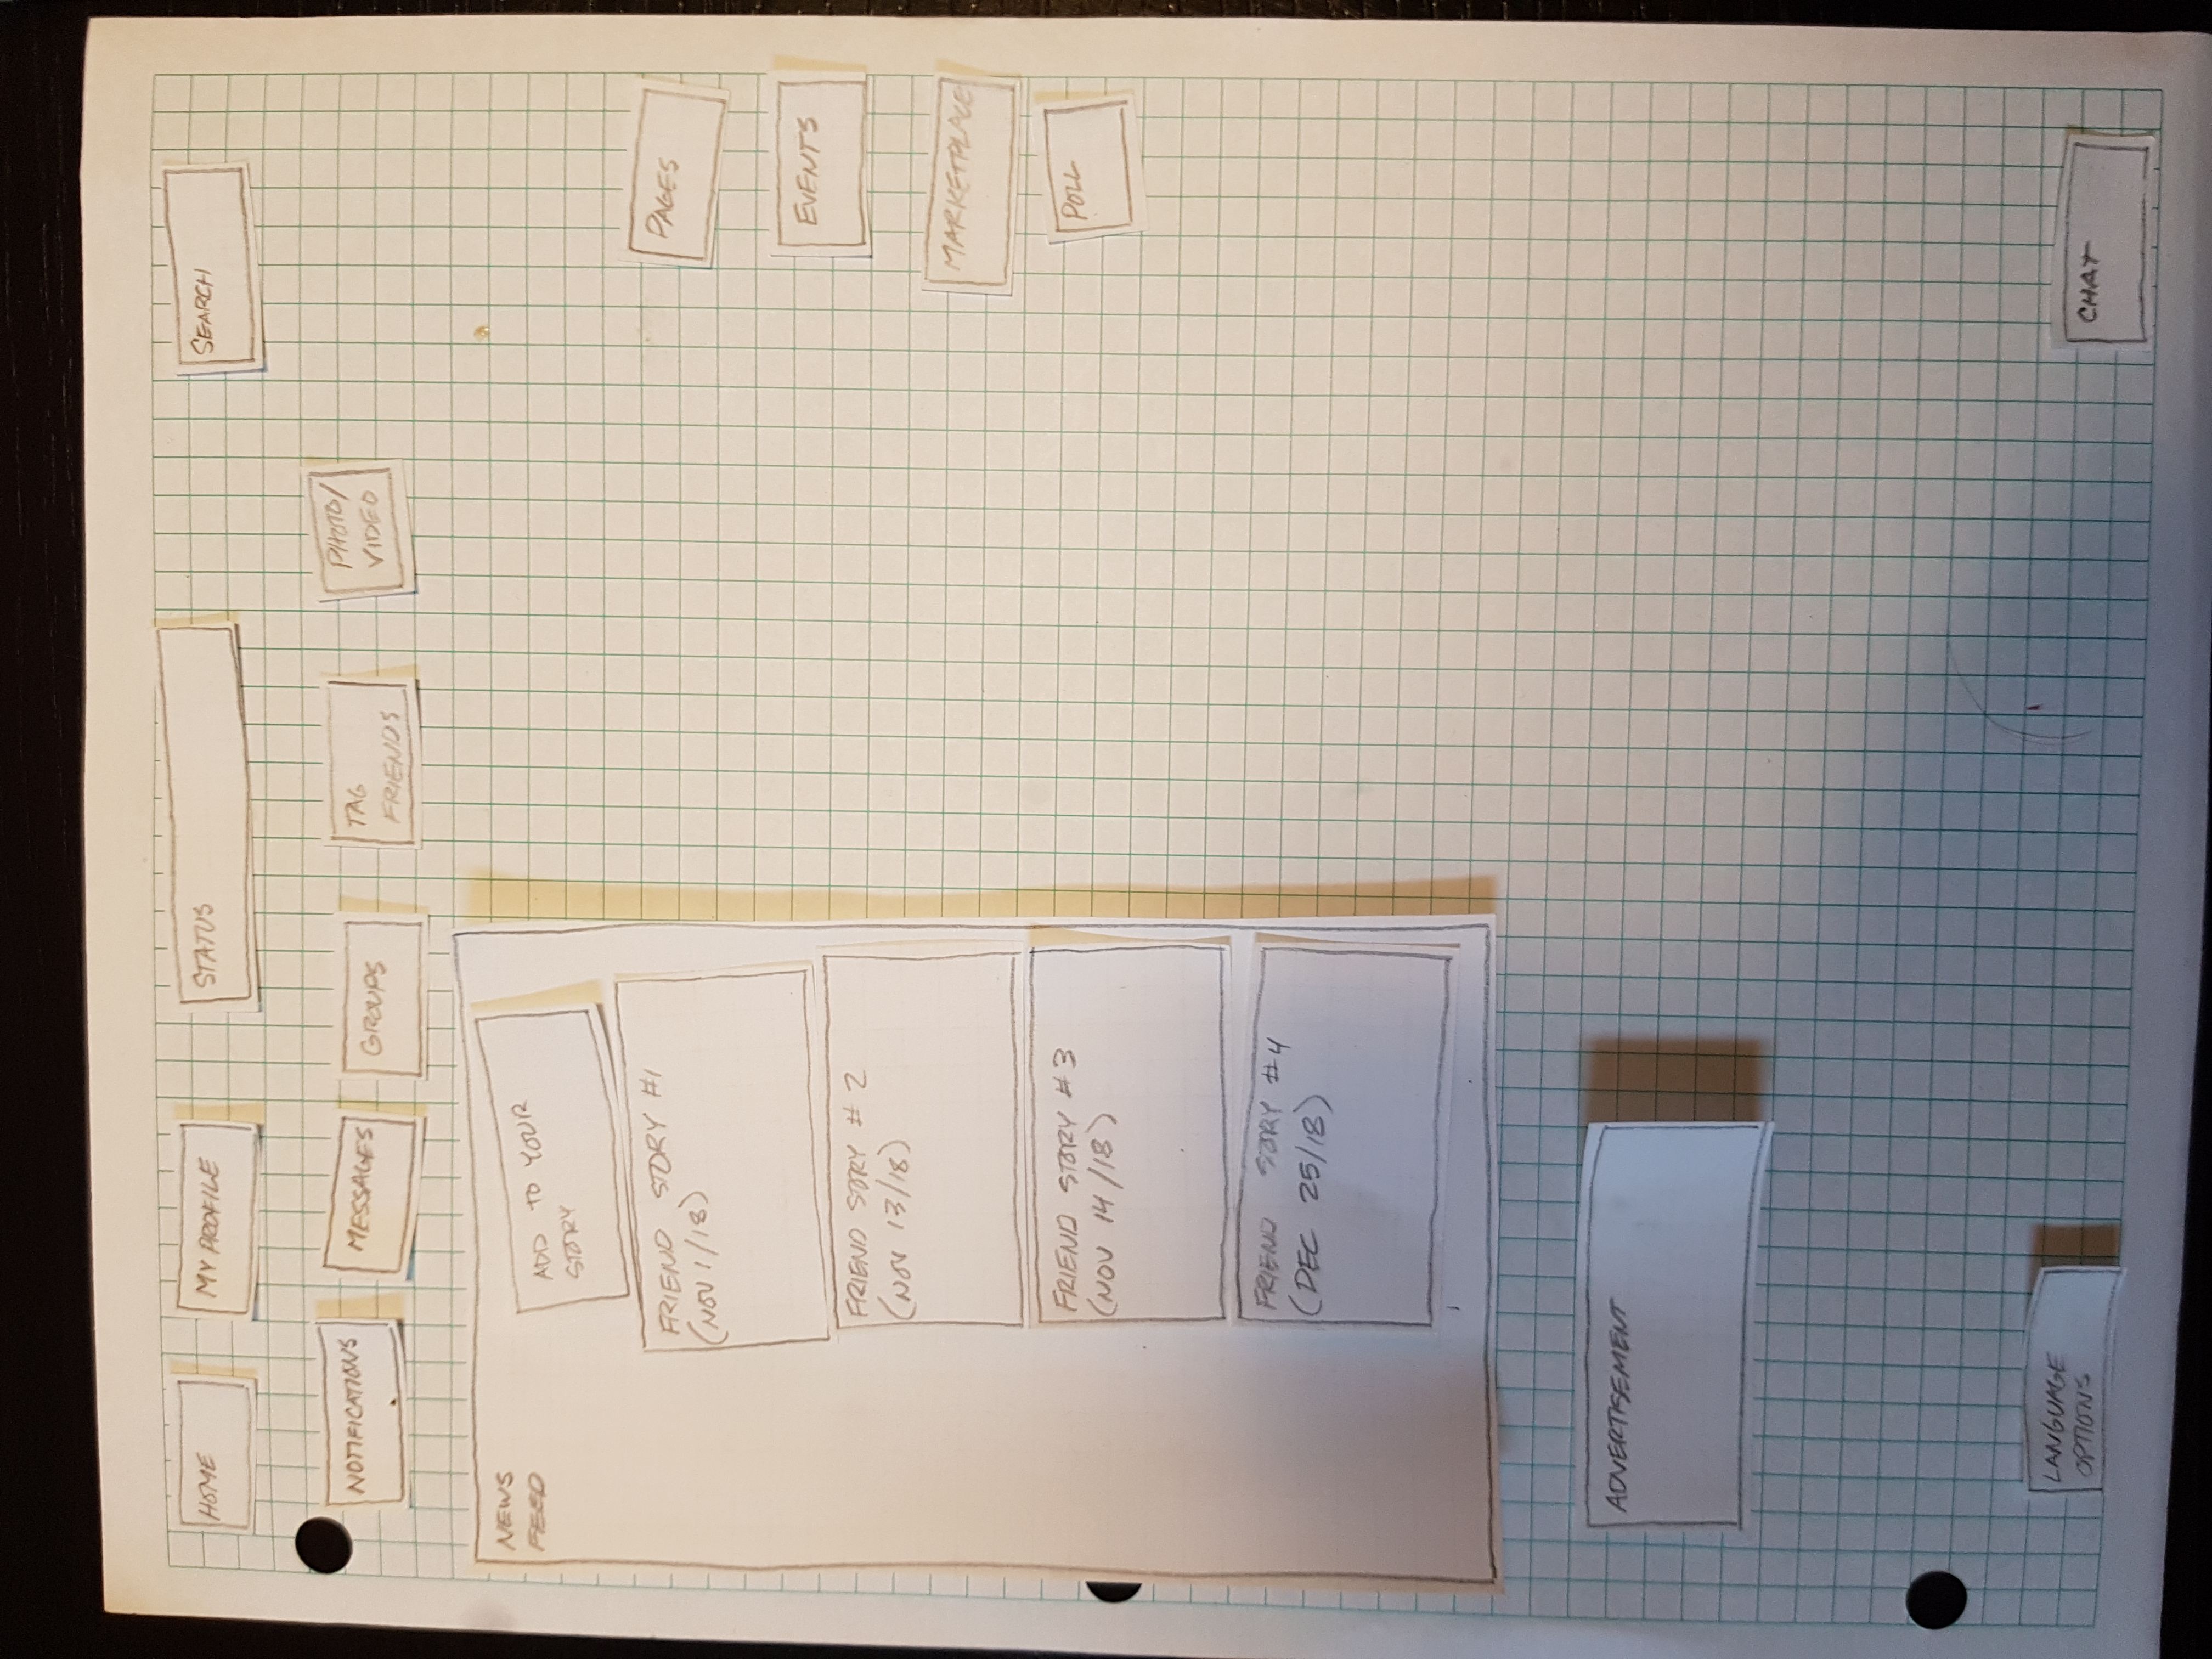 HOME
MY PROFILE
STATUS
SEARCH
NOTIFICATIONS
MESSAGES
GROUPS
TAG
FRIENDS
PHOTO/
VIDEO
NEWS
FEED
ADD TO YOUR
STORY
FRIEND STORY #1
(NOV 1/18)
FRIEND STORY # 2
(NOV 13/18)
FRIEND STORY #3
(NOV 14/18)
FRIEND STORY #4
(DEC 25/18)
PAGES
EVENTS
MARKETPLACE
POLL
ADVERTISEMENT
LANGUAGE
OPTIONS
CHAT